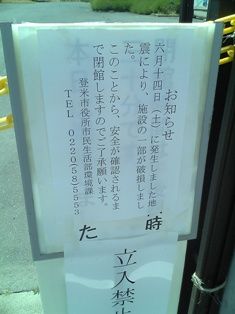 お知らせ
六月十四日(土)に発生しました地
震により、施設の一部が破損しまし
た。
このことから、安全が確認されるま
で閉館しますのでご了承願います。
登米市役所市民生活部環境課
TEL 0220(58)5553
時
た
立入禁止